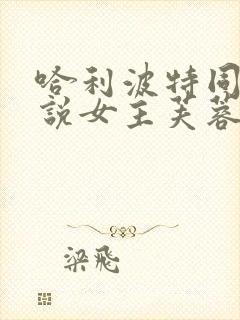 哈利波特同
說女王芙蓉
梁飛